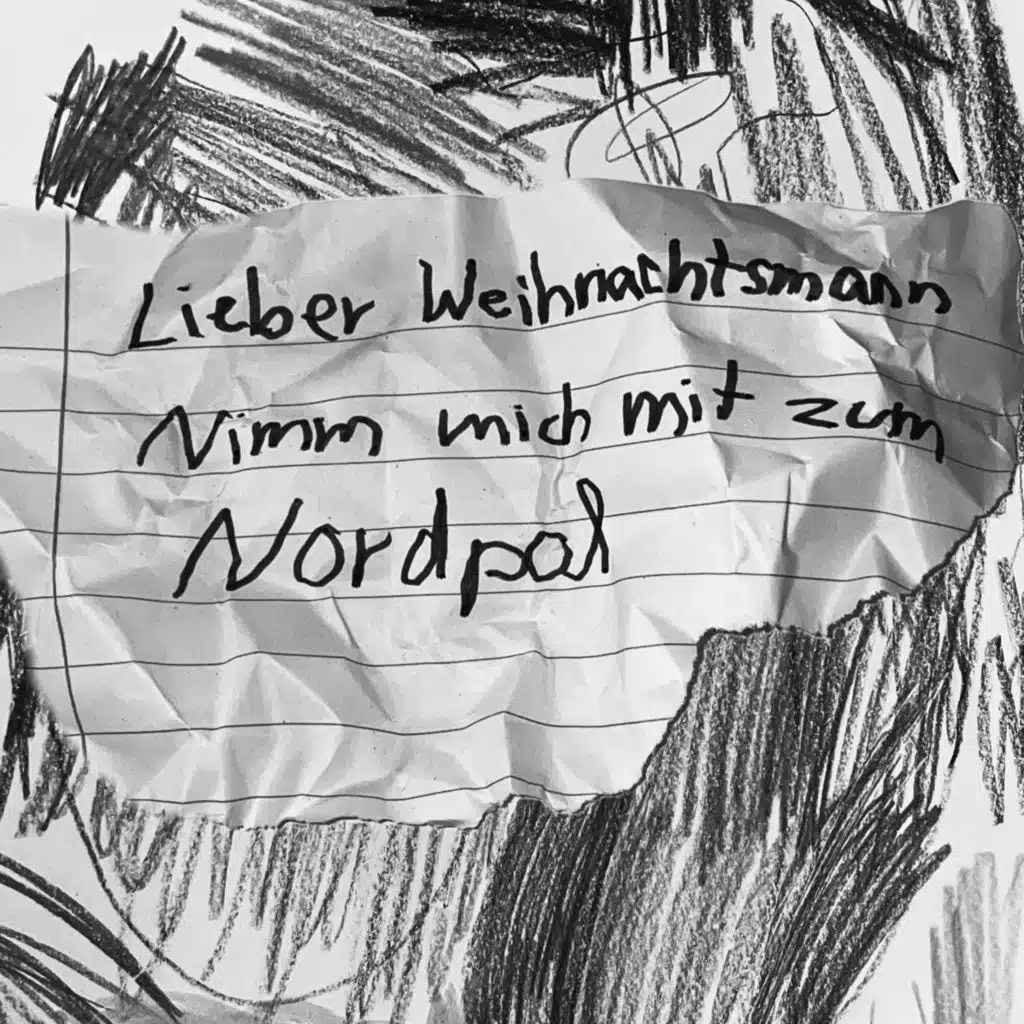 Lieber Weihnachtsmann
Nimm mich mit zum
Nordpol